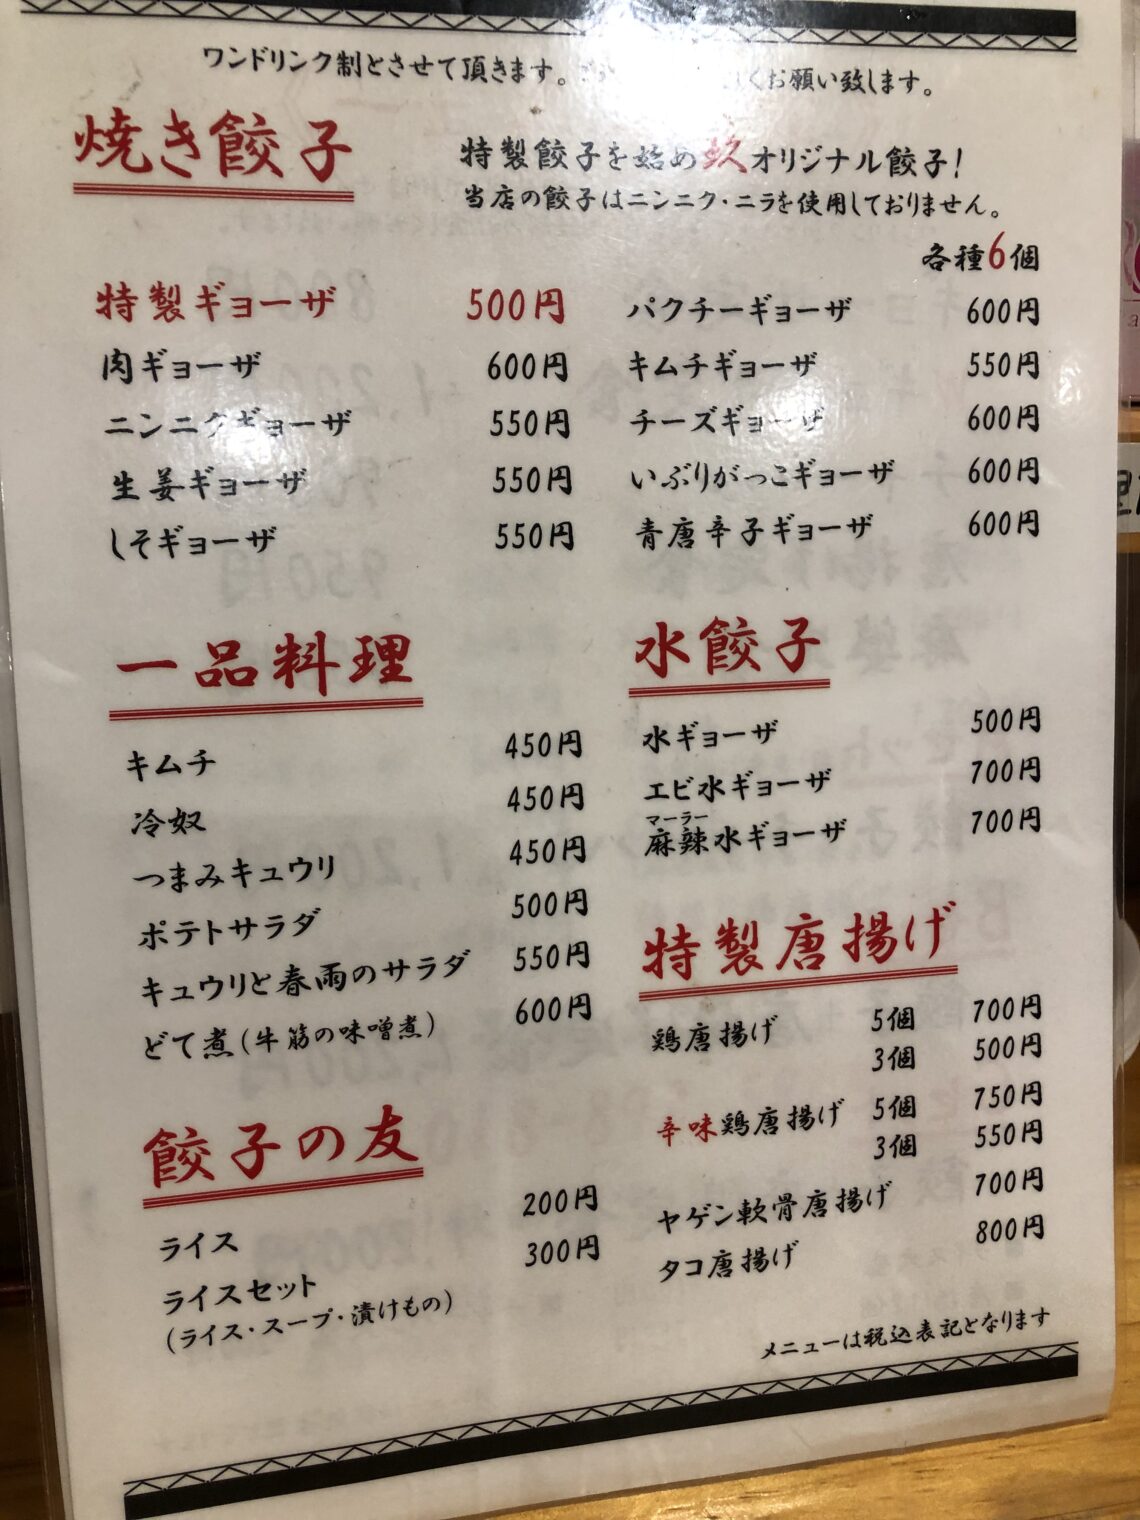 ワンドリンク制とさせて頂きます。 くお願い致します。
焼き餃子
特製餃子を始め玖オリジナル餃子!
当店の餃子はニンニク・ニラを使用しておりません。
各種6個
特製ギョーザ 500円
肉ギョーザ 600円
ニンニクギョーザ 550円
生姜ギョーザ 550円
しそギョーザ 550円
パクチーギョーザ 600円
キムチギョーザ 550円
チーズギョーザ 600円
いぶりがっこギョーザ 600円
青唐辛子ギョーザ 600円
一品料理
キムチ 450円
冷奴 450円
つまみキュウリ 450円
ポテトサラダ 500円
キュウリと春雨のサラダ 550円
どて煮(牛筋の味噌煮) 600円
餃子の友
ライス 200円
ライスセット 300円
(ライス・スープ・漬けもの)
水餃子
水ギョーザ 500円
エビ水ギョーザ 700円
マーラー
麻辣水ギョーザ 700円
特製唐揚げ
鶏唐揚げ 5個 700円
3個 500円
辛味鶏唐揚げ 5個 750円
3個 550円
ヤゲン軟骨唐揚げ 700円
タコ唐揚げ 800円
メニューは税込表記となります